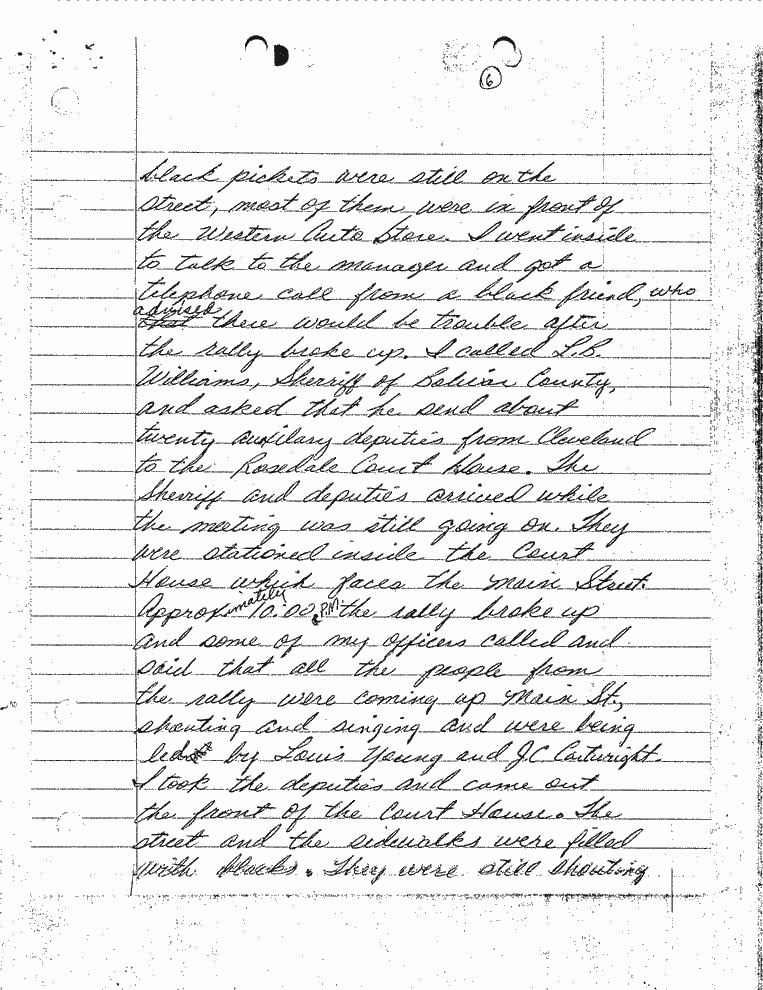 6
black pickets were still on the
street, most of them were in front of
the Western Auto Store. I went inside
to talk to the manager and got a
telephone call from a black friend, who
advised
that there would be trouble after
the rally broke up. I called L.B.
Williams, Sherriff of Bolivar County,
and asked that he send about
twenty auxilary deputies from Cleveland
to the Rosedale Court House. The
Sherriff and deputies arrived while
the meeting was still going on. They
were stationed inside the Court
House which faces the Main Street.
Approximately 10:00 P.M. the rally broke up
and some of my officers called and
said that all the people from
the rally were coming up Main St.,
shouting and singing and were being
led by Louis Young and J.C. Cartwright.
I took the deputies and came out
the front of the Court House. The
street and the sidewalks were filled
with blacks. They were still shouting